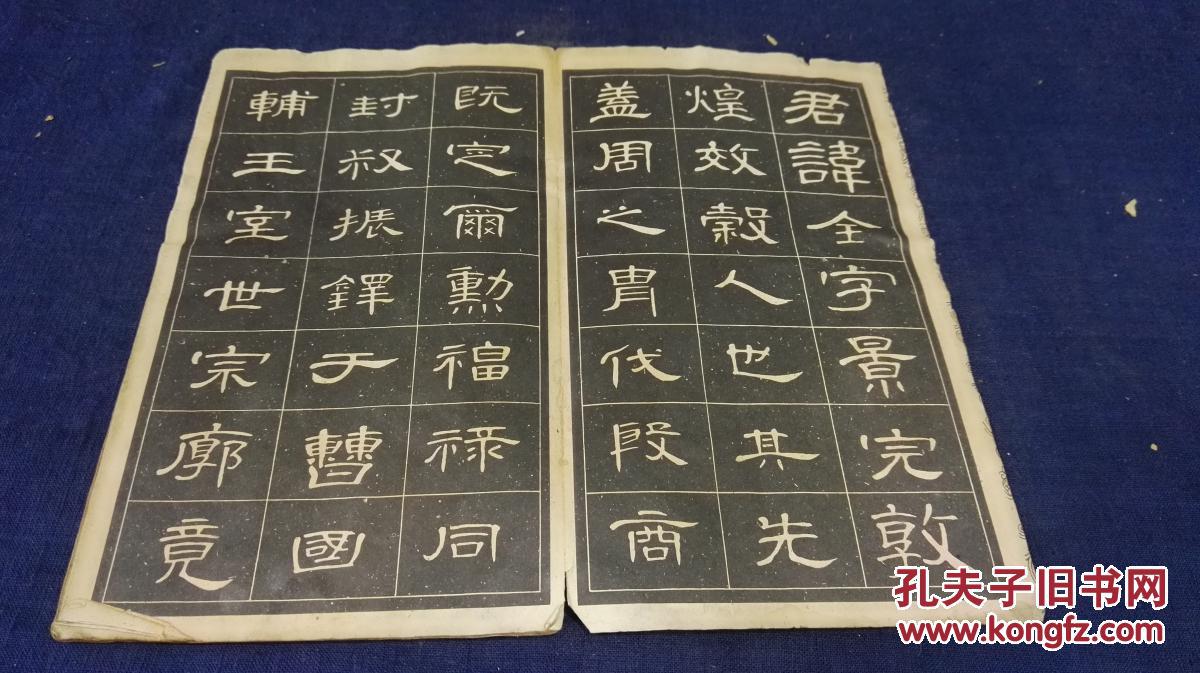 君諱全字景完敦
煌效穀人也其先
蓋周之胄伐殷商
既定爾勲福祿同
封叔振鐸于曹國
輔王室世宗廓竟
孔夫子旧书网
www.kongfz.com